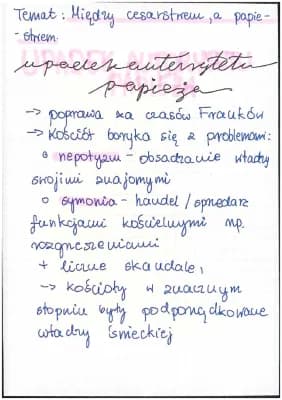 Temat: Między cesarstwem, a papie-
-stwem.
upadek autorytetu
papieża
-> poprawa za czasów Franków
-> Kościół boryka się z problemami:
o nepotyzm - obsadzanie władzy
swojimi znajomymi
o symonia - handel / sprzedarz
funkcjami kościelnymi np.
rozgrzeszeniami
+ liczne skandale,
-> kościoły w znacznym
stopniu były podporządkowane
władzy świeckiej